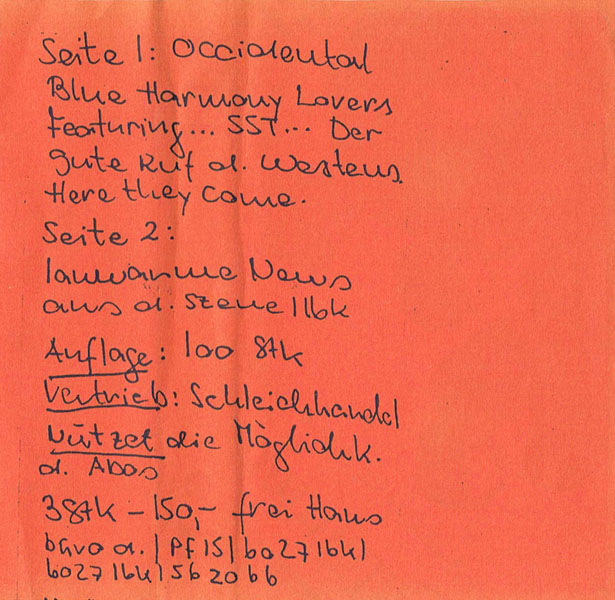 Seite 1: Occidental
Blue Harmony Lovers
Featuring... SST... Der
gute Ruf d. Westens
Here they come.
Seite 2:
lauwarme News
aus d. Szene Ibk
Auflage: 100 Stk
Vertrieb: Schleichhandel
Nützet die Möglichk.
d. Abos
3 Stk - 150,- frei Haus
büro d. | PF 15 | 6027 Ibk |
6027 Ibk | 562066